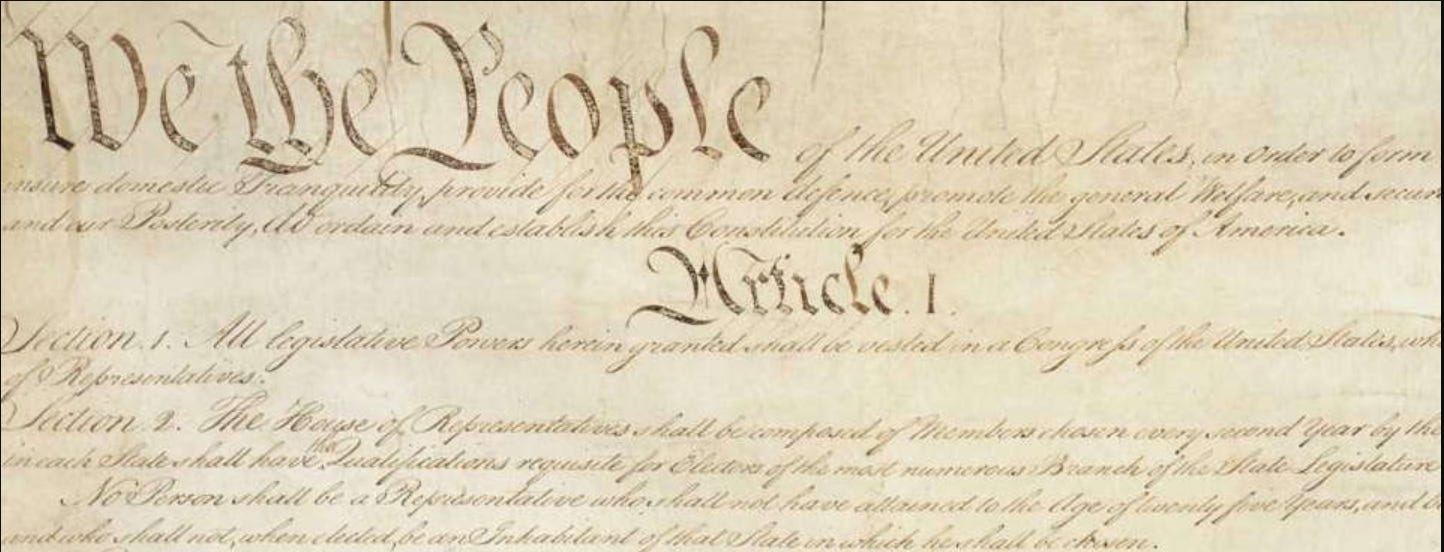 We the People of the United States, in Order to form
insure domestic Tranquility, provide for the common defence, promote the general Welfare, and secur
and our Posterity, do ordain and establish this Constitution for the United States of America.
Article. I.
Section. 1. All legislative Powers herein granted shall be vested in a Congress of the United States, wh
of Representatives.
Section. 2. The House of Representatives shall be composed of Members chosen every second Year by the
in each State shall have the Qualifications requisite for Electors of the most numerous Branch of the State Legislature
No Person shall be a Representative who shall not have attained to the Age of twenty five Years, and b
and who shall not, when elected, be an Inhabitant of that State in which he shall be chosen.